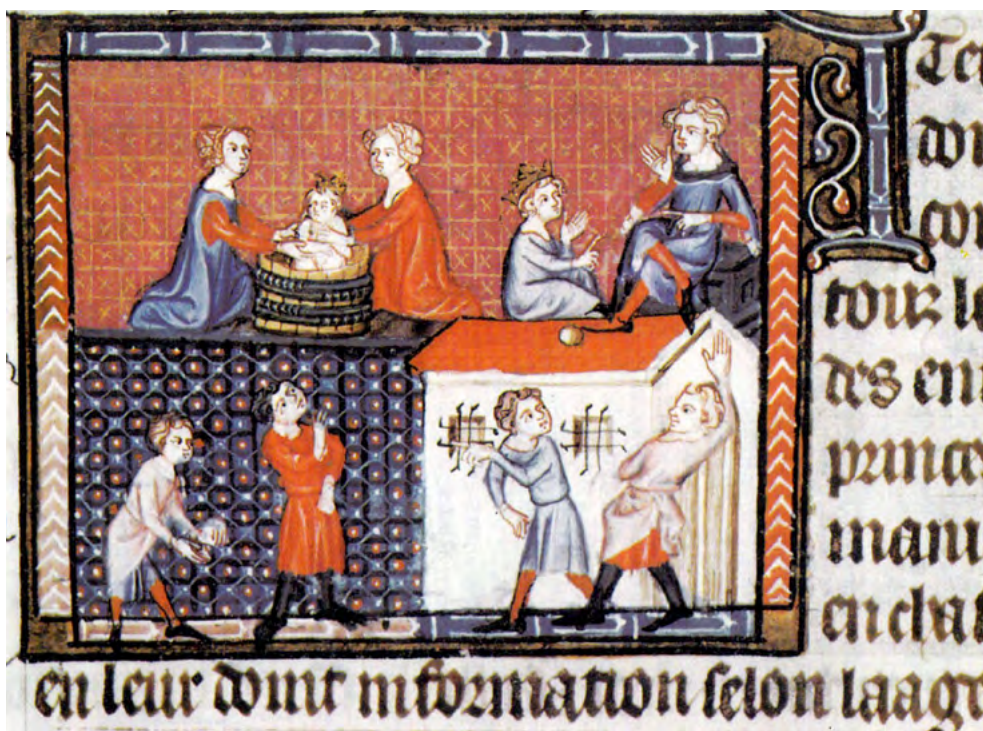 don
con
touz le
des en
prince
manu
en cha
en leur doint information selon laage